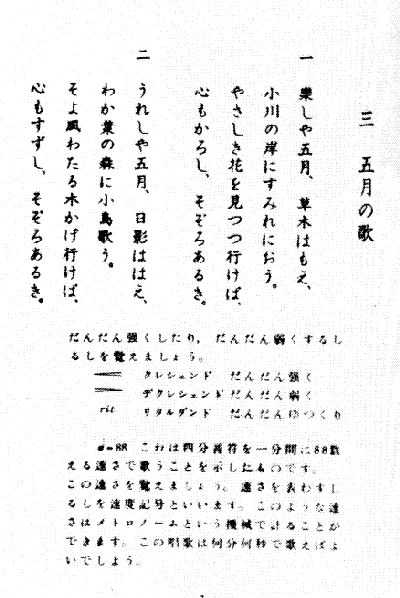 三 五月の歌
一
樂しや五月、草木はもえ、
小川の岸にすみれにおう。
やさしき花を見つつ行けば、
心もかろし、そぞろあるき。
二
うれしや五月、日影ははえ、
わか葉の森に小鳥歌う。
そよ風わたる木かげ行けば、
心もすずし、そぞろあるき。
だんだん強くしたり, だんだん弱くするし
るしを覚えましょう。
クレシェンド だんだん強く
デクレシェンド だんだん弱く
rit リタルダンド だんだんゆっくり
♩=88 これは四分音符を一分間に88数
える速さで歌うことを示したものです。
この速さを覚えましょう。速さを表わすし
るしを速度記号といいます。このような速
さはメトロノームという機械で計ることが
できます。この唱歌は何分何秒で歌えばよ
いでしょう。